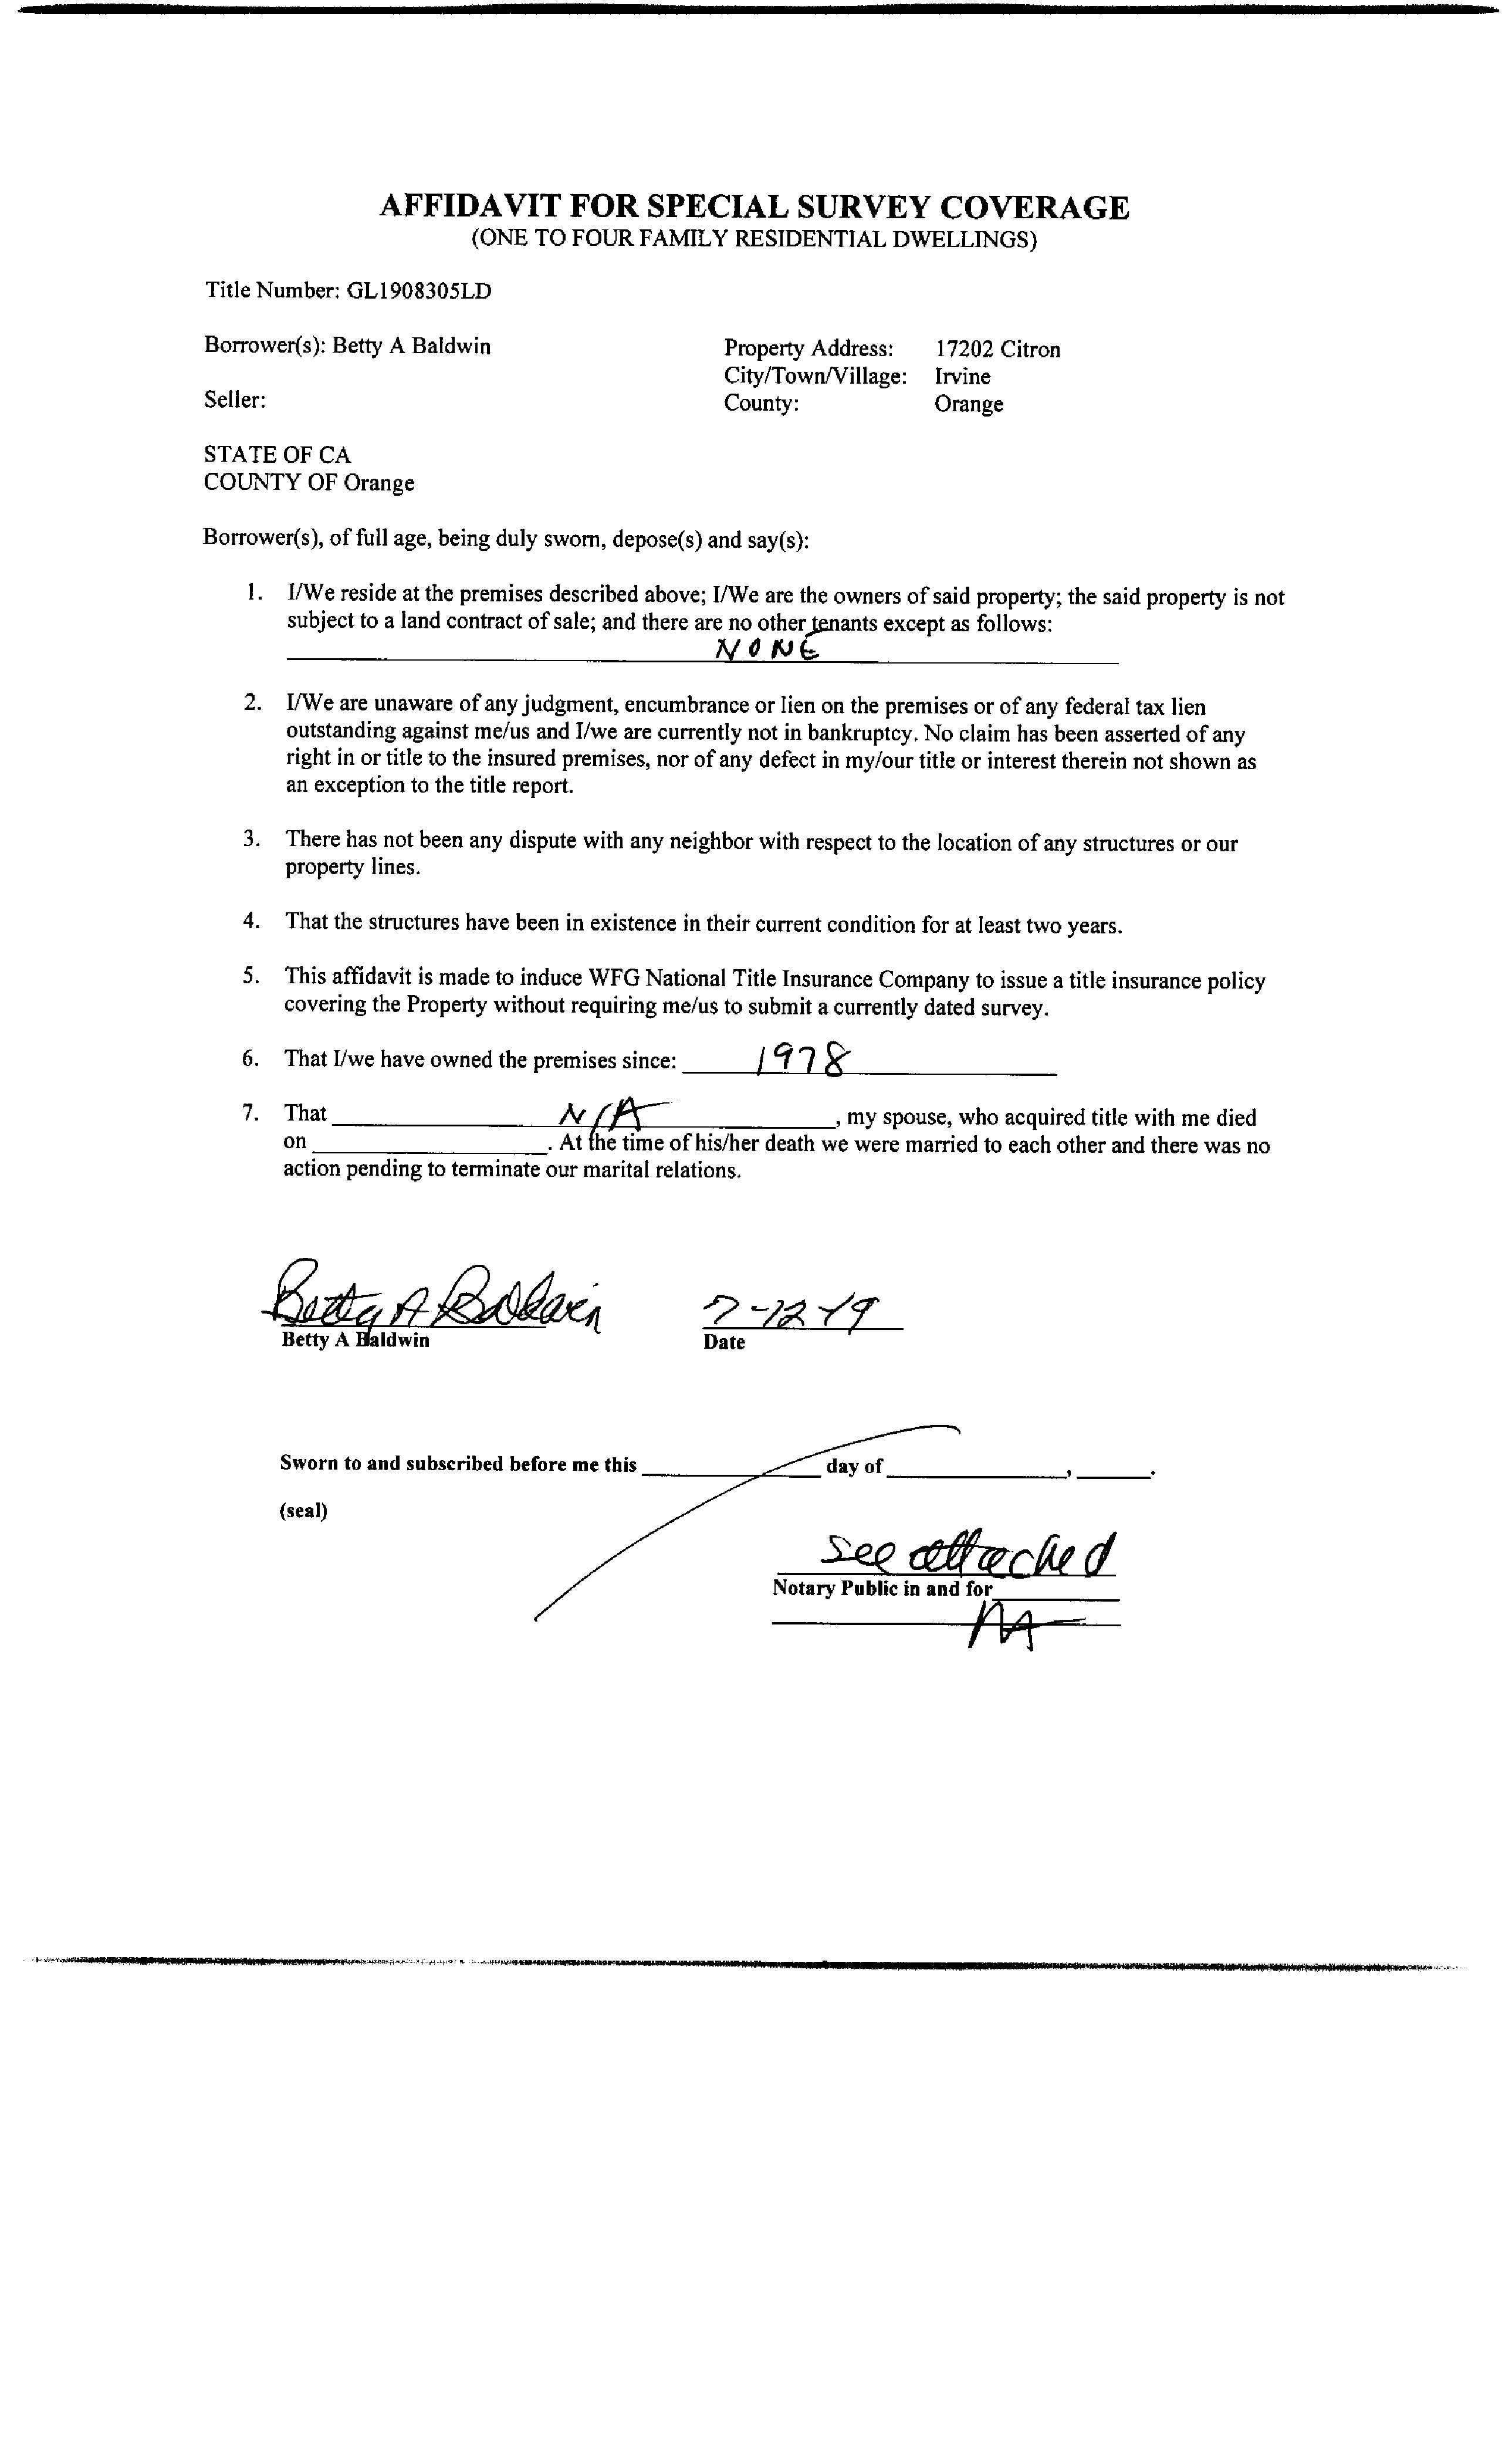 AFFIDAVIT FOR SPECIAL SURVEY COVERAGE
(ONE TO FOUR FAMILY RESIDENTIAL DWELLINGS)
Title Number: GL1908305LD
Borrower(s): Betty A Baldwin
Property Address: 17202 Citron
City/Town/Village: Irvine
Seller:
County: Orange
STATE OF CA
COUNTY OF Orange
Borrower(s), of full age, being duly sworn, depose(s) and say(s):
1. I/We reside at the premises described above; I/We are the owners of said property; the said property is not
subject to a land contract of sale; and there are no other tenants except as follows:
NONE
2. I/We are unaware of any judgment, encumbrance or lien on the premises or of any federal tax lien
outstanding against me/us and I/we are currently not in bankruptcy. No claim has been asserted of any
right in or title to the insured premises, nor of any defect in my/our title or interest therein not shown as
an exception to the title report.
3. There has not been any dispute with any neighbor with respect to the location of any structures or our
property lines.
4. That the structures have been in existence in their current condition for at least two years.
5. This affidavit is made to induce WFG National Title Insurance Company to issue a title insurance policy
covering the Property without requiring me/us to submit a currently dated survey.
6. That I/we have owned the premises since: 1978
7. That N/A, my spouse, who acquired title with me died
on ____. At the time of his/her death we were married to each other and there was no
action pending to terminate our marital relations.
Betty A Baldwin 7-12-19
Betty A Baldwin Date
Sworn to and subscribed before me this ____ day of ____, ____.
(seal)
see attached
Notary Public in and for